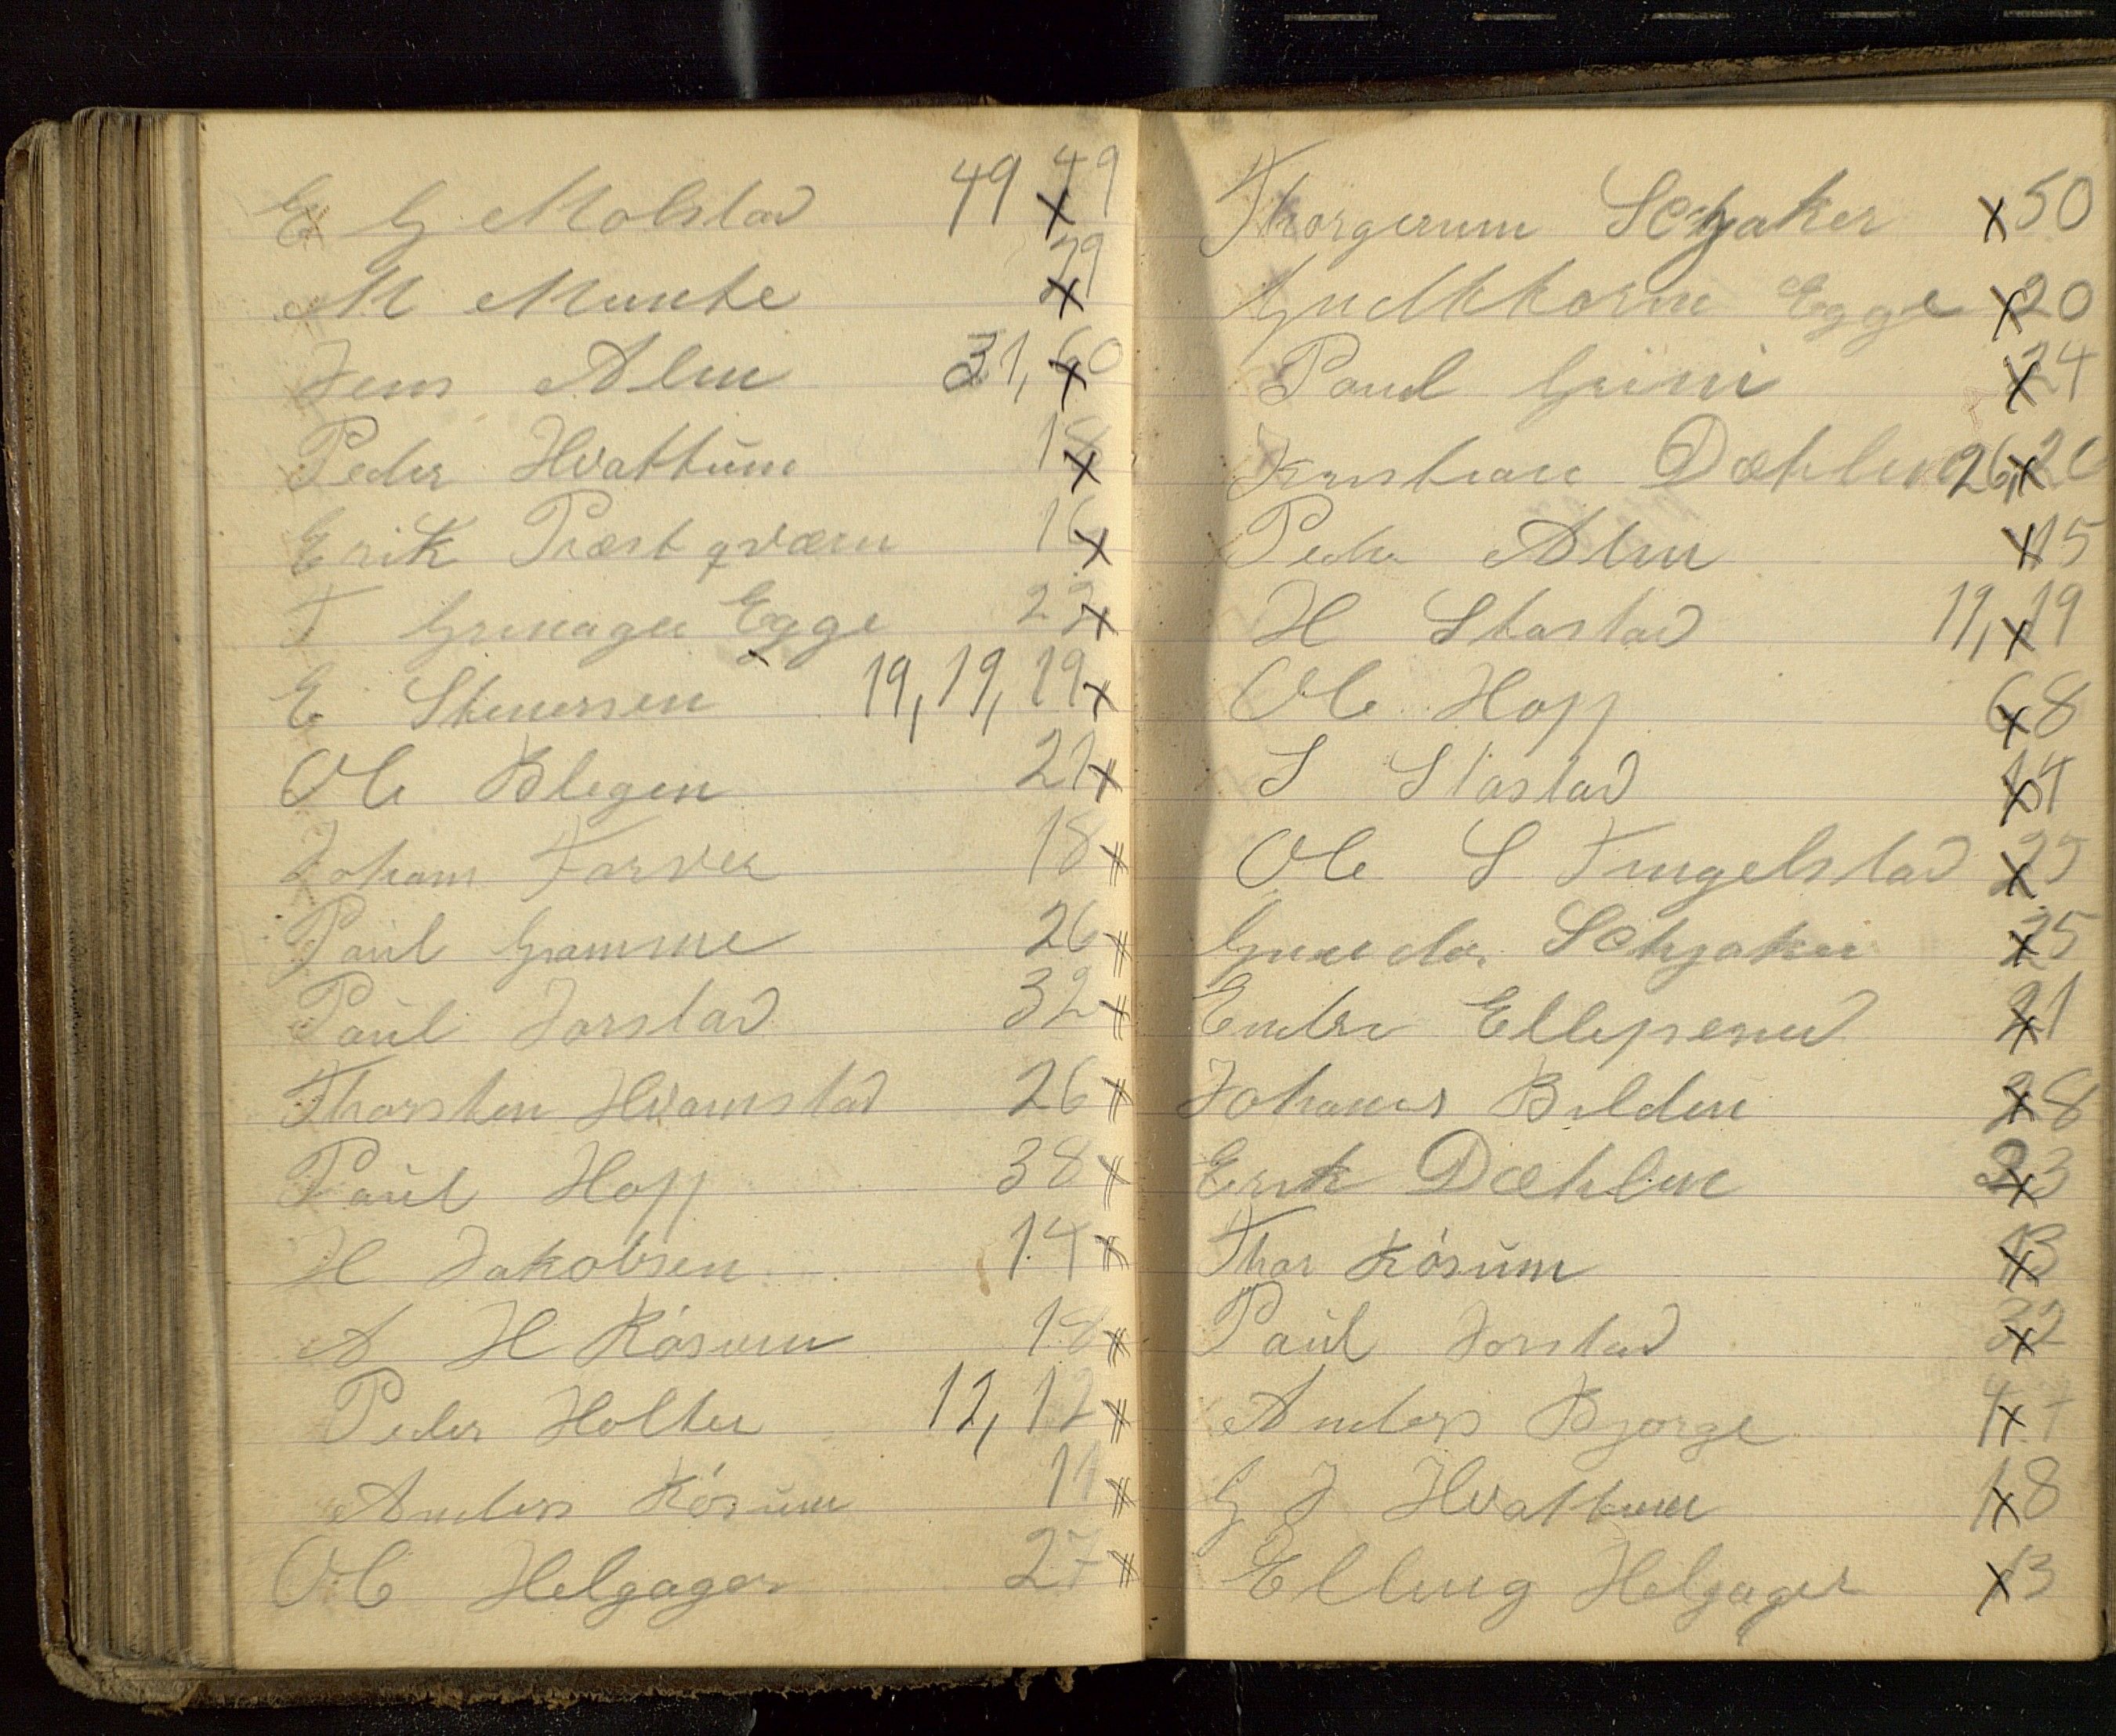 E G Molstad 49 49 x
M Munke 29 x
Jens Alm 31, 60 x
Peder Hvattŭm 18 x
Erik Præstqværn 16 x
T Grinager Egge 22 x
E Stenersen 19, 19, 19 x
Ole Blegen 21 x
Johans Farver 18 x
Paŭl Gramme 26 x
Paŭl Jorstad 32 x
Thorsten Hvamstad 26 x
Paŭl Hopp 38 x
H Jakobsen 14 x
A H Kósum 18 x
Peder Holter 12, 12 x
Anders Kósŭm 11 x
Ole Helgager 27 x
Thorgerum Schjaker x 50
Gudtkorm Egge x 20
Paul x 24
Kristian Dæhlin 26, x 26
Peder Alm x 15
H Stastad 19, x 19
Ole Hopp 68 x
S Stastad 14 x
Ole S Tingelstad x 25
Gunder Schjaker x 25
Endre Ellepsrud 21 x
Johans Bilden 28 x
Erik Dæhlin 23 x
Thor Kósŭm 13 x
Paŭl Jorstad 32 x
Anders Bjorge x
G J Hvattum 18 x
Elling Helgager x 13